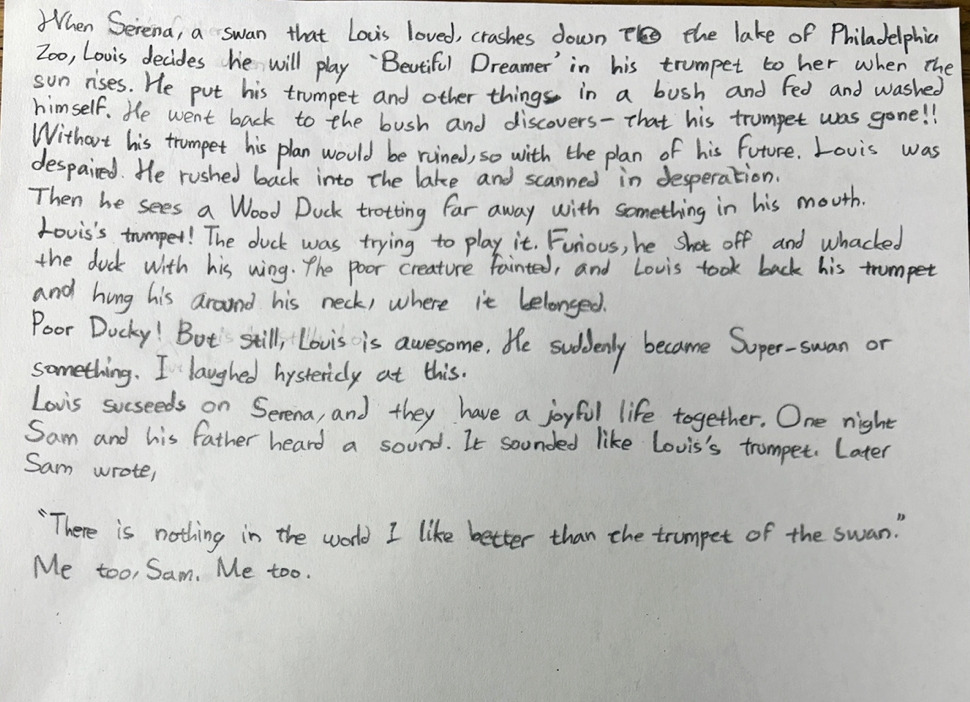 When Serena, a swan that Louis loved, crashes down the lake of Philadelphia
Zoo, Louis decides he will play 'Beutiful Dreamer' in his trumpet to her when the
sun rises. He put his trumpet and other things in a bush and fed and washed
himself. He went back to the bush and discovers- that his trumpet was gone!!
Without his trumpet his plan would be ruined, so with the plan of his future. Louis was
despaired. He rushed back into the lake and scanned in desperation.
Then he sees a Wood Duck trotting far away with something in his mouth.
Louis's trumpet! The duck was trying to play it. Furious, he shot off and whacked
the duck with his wing. The poor creature fainted, and Louis took back his trumpet
and hung his around his neck, where it belonged.
Poor Ducky! But still, Louis is awesome. He suddenly became Super-swan or
something. I laughed hystericly at this.
Louis sucseeds on Serena, and they have a joyful life together. One night
Sam and his father heard a sound. It sounded like Louis's trumpet. Later
Sam wrote,
"There is nothing in the world I like better than the trumpet of the swan."
Me too, Sam. Me too.